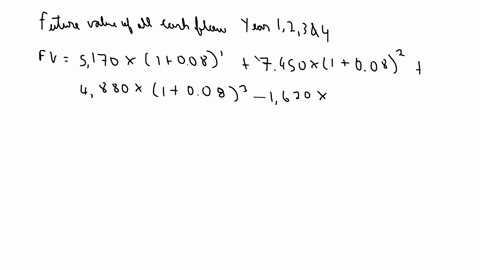 Future value of all cash flow Year 1,2,3&4
FV = 5,170 × (1+0.08)¹ + 7.450×(1+0.08)² +
4,880 × (1+0.08)³ — 1,620 ×